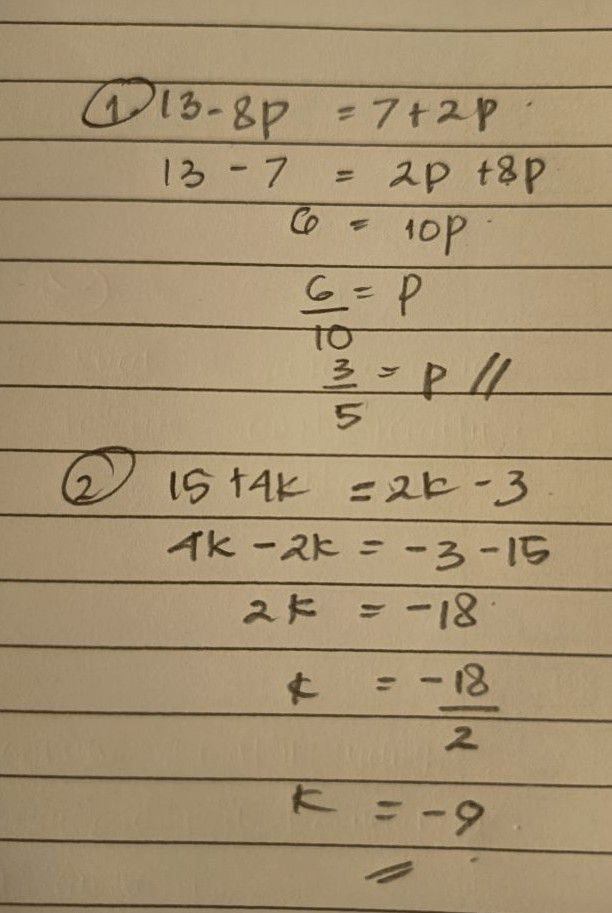 ① 13 - 8p = 7 + 2p
13 - 7 = 2p + 8p
6 = 10p
6/10 = p
3/5 = p //
② 15 + 4k = 2k - 3
4k - 2k = -3 - 15
2k = -18
k = -18/2
k = -9